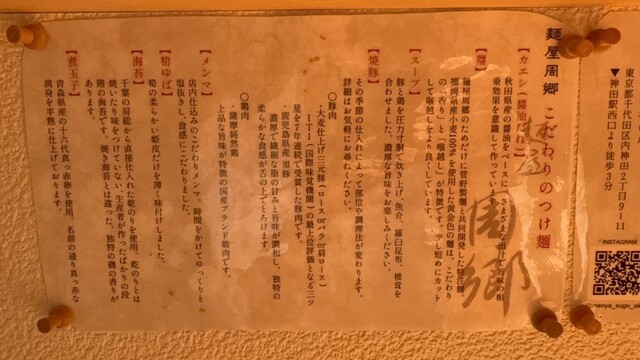 麺屋周郷 こだわりのつけ麺
【カエシ(醤油だれ)】
秋田県産の醤油をベースに
乗効果を意識して作っています。
【麺】
麺屋周郷のためだけに菅野製麺と共同開発した特注麺。
福岡県産小麦100%を使用した黄金色の麺は、こだわり
の「香り」と「喉越し」が特徴です。少し短めにカット
して喉越しをより良くしています。
【スープ】
豚と鶏を圧力寸胴で炊き上げ、魚介、羅臼昆布、椎茸を
合わせました。濃厚な旨味をお楽しみください。
【焼豚】
その季節の仕入れによって部位や調理法が変わります。
詳細はお気軽にお尋ねください。
〇豚肉
・大麦仕上げ三元豚(ロースorバラor肩ロース)
ITI(国際味覚機関)の最上位評価となる三ツ
星を7年連続で受賞した豚肉です。
・鹿児島県産黒豚
濃厚で繊細な脂の甘みと旨味が調和し、独特の
柔らかな食感が舌の上でとろけます。
〇鶏肉
・薩摩純然鶏
上品な旨味が特徴の国産ブランド鶏肉です。
【メンマ】
店内仕込みのこだわりメンマ。時間をかけてゆっくりと
塩抜きし、食感にこだわりました。
【筍ゆば】
筍の柔らかい姫皮だけを薄く味付けしました。
【海苔】
千葉の房総から直接仕入れた乾のりを使用。乾のりとは
焼いたり味をつけていない、生産者が作ったばかりの段
階の海苔です。焼き海苔とは違った、独特の磯の香りが
あります。
【煮玉子】
青森県産の十六代真っ赤卵を使用。名前の通り真っ赤な
黄身を半熟に仕上げております。
麺屋
周郷
東京都千代田区内神田2丁目9-11
▼神田駅西口より徒歩3分
INSTAGRAM